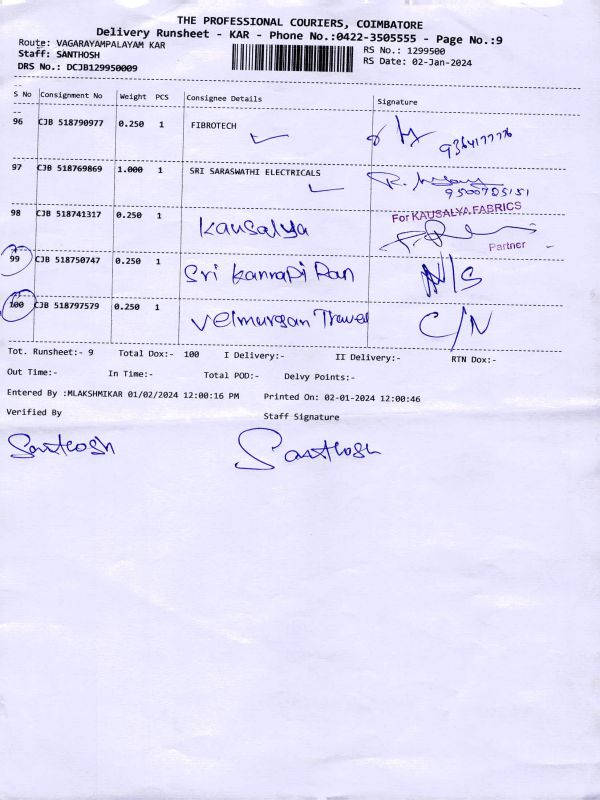 THE PROFESSIONAL COURIERS, COIMBATORE
Delivery Runsheet - KAR - Phone No.:0422-3505555 - Page No.:9
Route: VAGARAYAMPALAYAM KAR
Staff: SANTHOSH
DRS No.: DCJB129950009
RS No.: 1299500
RS Date: 02-Jan-2024
S No Consignment No Weight PCS Consignee Details Signature
96 CJB 518790977 0.250 1 FIBROTECH 9364177776
97 CJB 518769869 1.000 1 SRI SARASWATHI ELECTRICALS
9500725151
98 CJB 518741317 0.250 1 Kausalya For KAUSALYA FABRICS
Partner
99 CJB 518750747 0.250 1 Sri N/S
100 CJB 518797579 0.250 1 Velmurgan Travel C/N
Tot. Runsheet:- 9 Total Dox:- 100 I Delivery:- II Delivery:- RTN Dox:-
Out Time:- In Time:- Total POD:- Delvy Points:-
Entered By :MLAKSHMIKAR 01/02/2024 12:00:16 PM Printed On: 02-01-2024 12:00:46
Verified By Staff Signature
Santhosh Santhosh